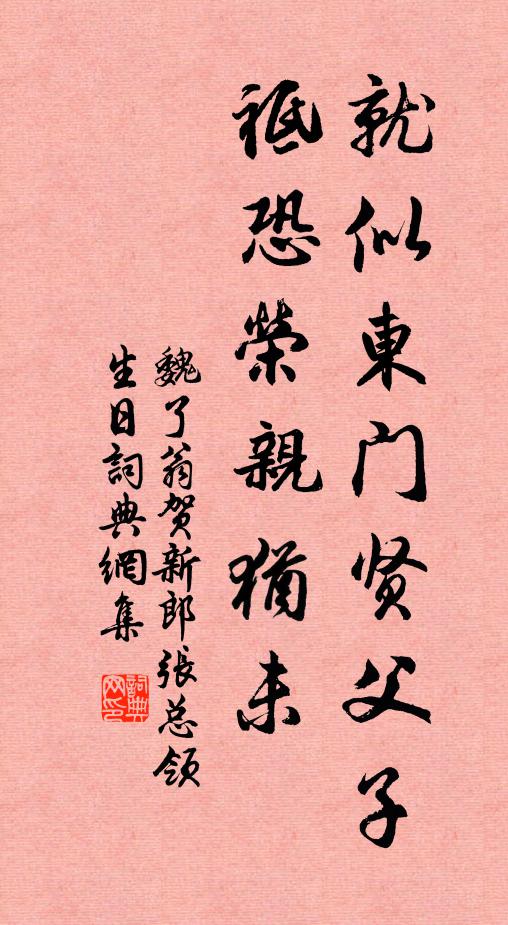 就似東门贤父子
祗恐榮親猶未
魏了翁贺新郎張总领
生日詞典網集
詞典网印